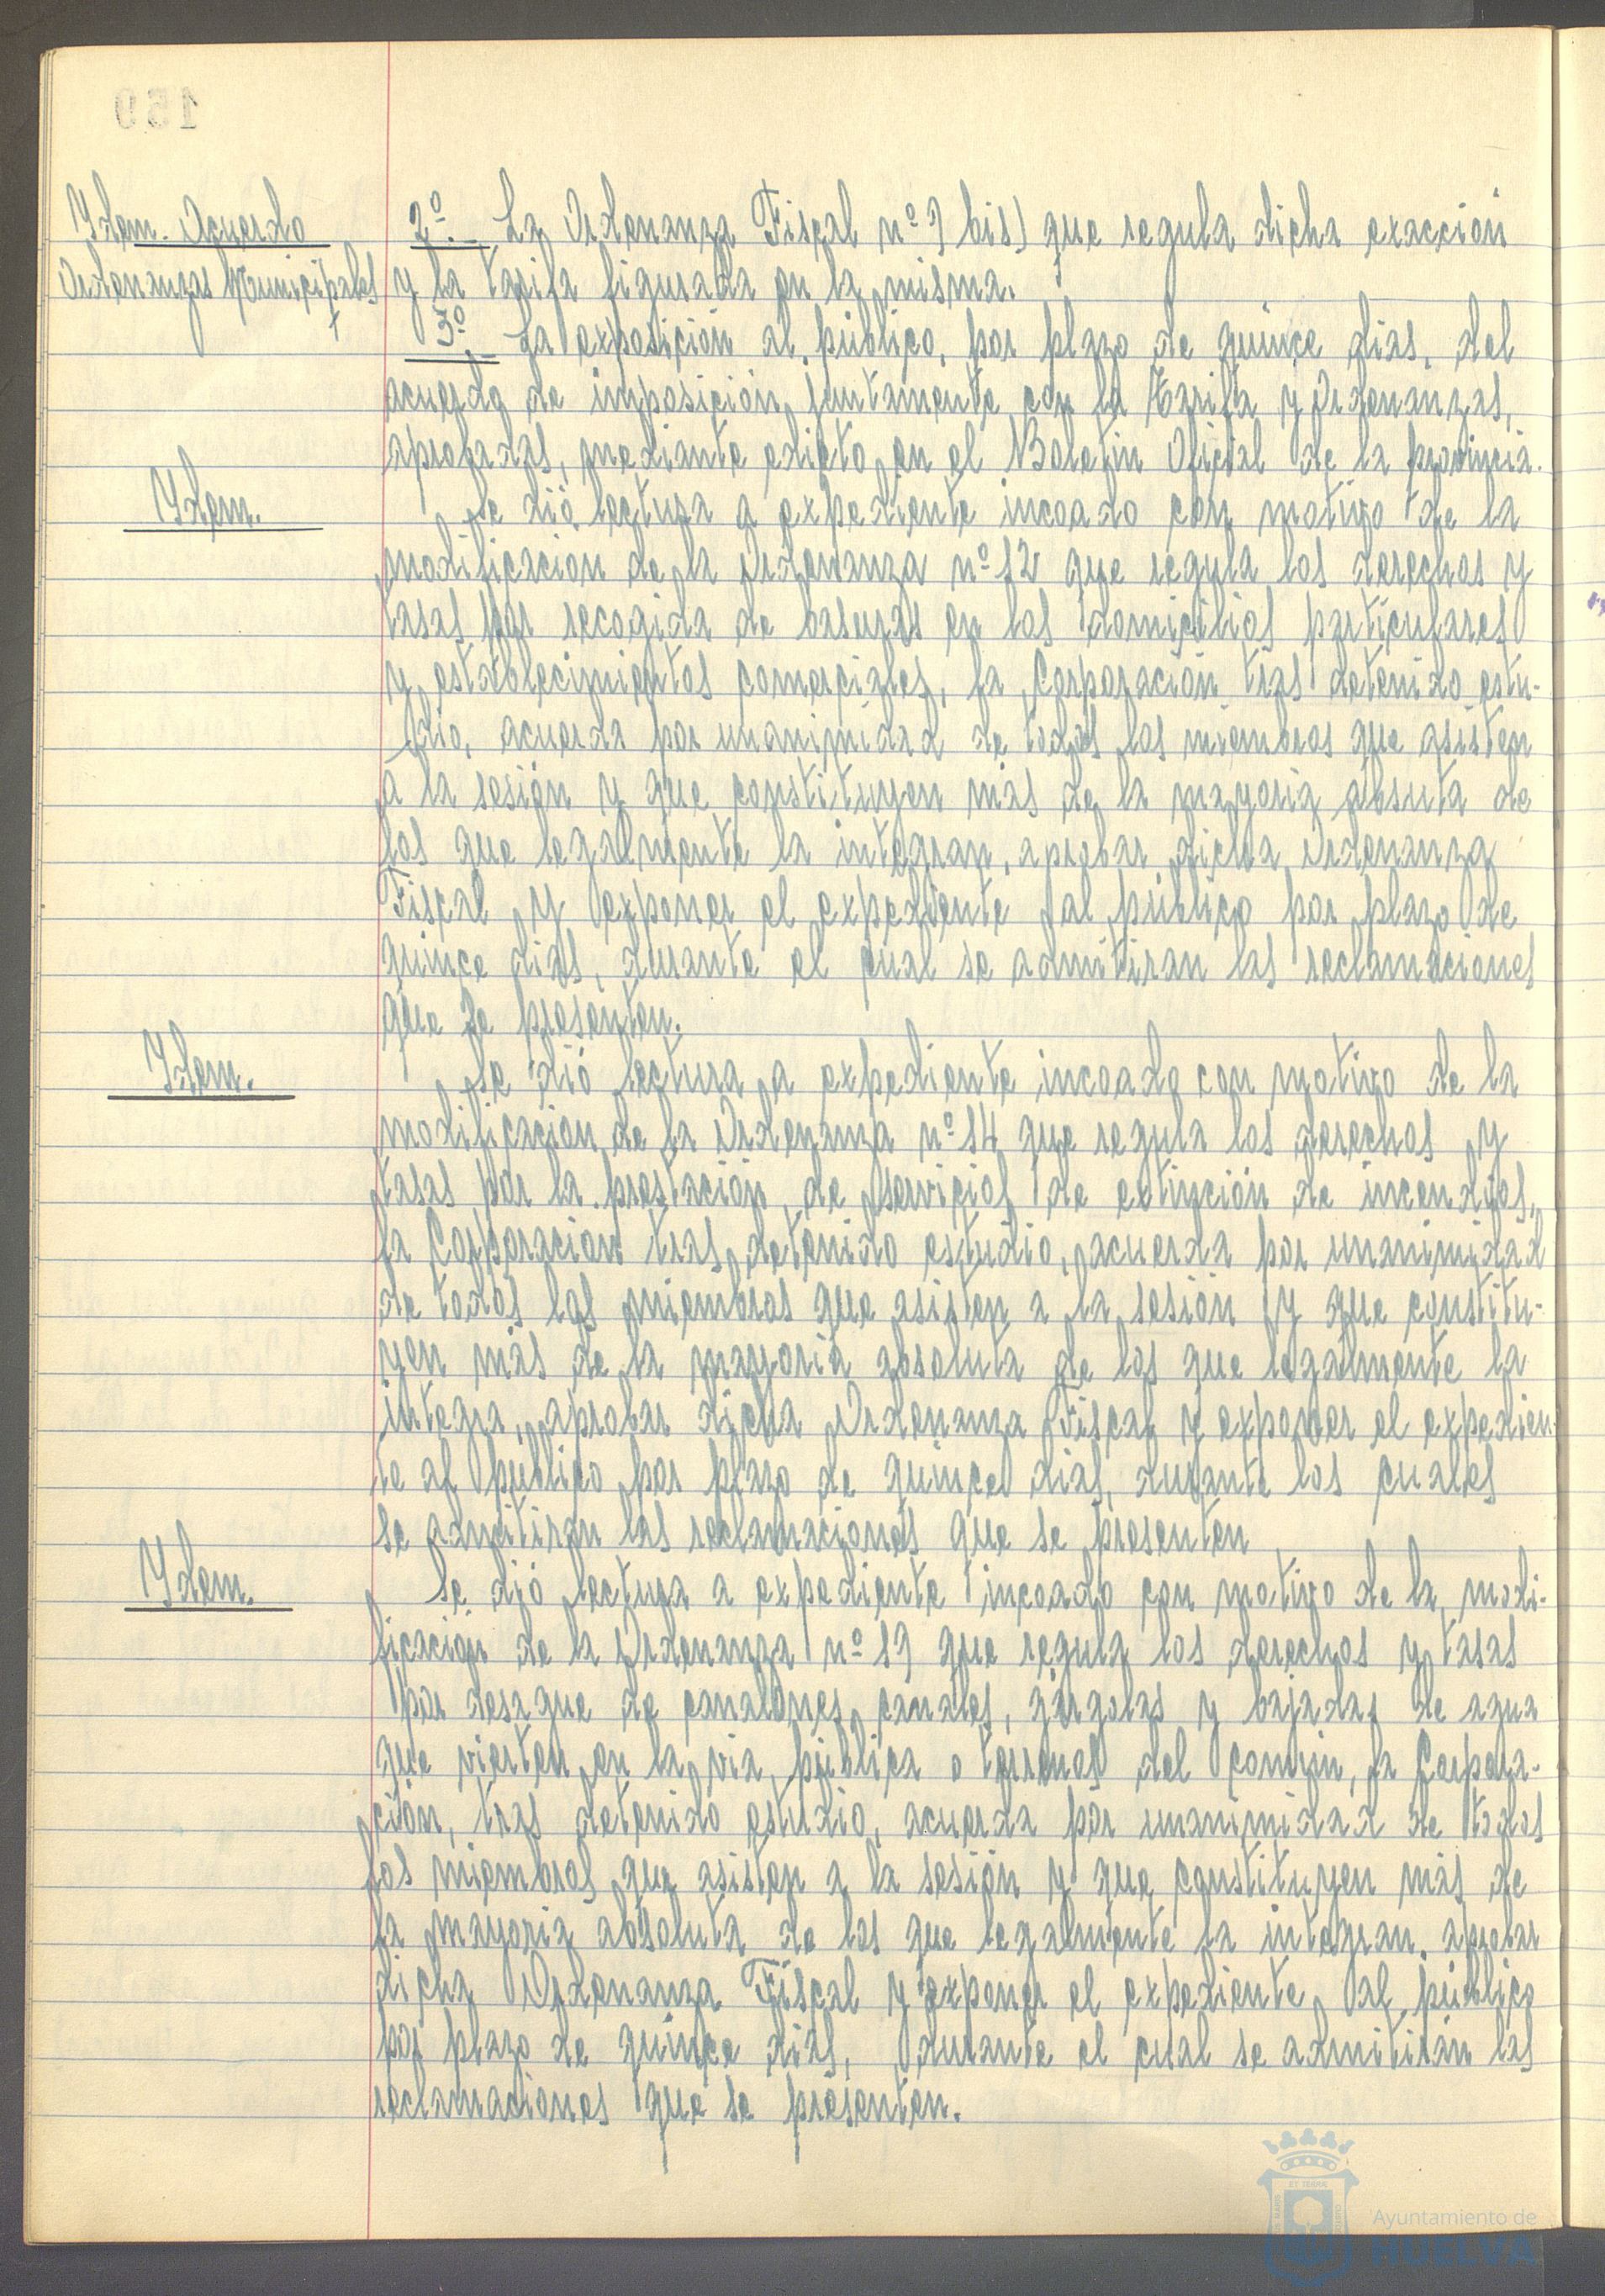 Ydem. Acuerdo
Ordenanzas Municipales
2º.- La Ordenanza Fiscal nº 9 bis) que regula dicha exacción
y la tarifa figurada en la misma.
3º.- La exposición al público, por plazo de quince dias, del
acuerdo de imposición, juntamente con la tarifa y Ordenanzas,
aprobadas, mediante edicto en el Boletin Oficial de la provincia.
Ydem.
Se dió lectura a expediente incoado con motivo de la
modificacion de la Ordenanza nº 12 que regula los derechos y
tasas por recogida de basuras en los domicilios particulares
y establecimientos comerciales, la Corporación tras detenido estu-
dio, acuerda por unanimidad de todos los miembros que asisten
a la sesión y que constituyen más de la mayoria absuta de
los que legalmente la integran, aprobar dicha Ordenanza
Fiscal y exponer el expediente al público por plazo de
quince dias, durante el cual se admitiran las reclamaciones
que se presenten.
Ydem.
Se dió lectura a expediente incoado con motivo de la
modificacion de la Ordenanza nº 14 que regula los derechos y
tasas por la prestación de servicios de extinción de incendios,
la Corporacion tras detenido estudio, acuerda por unanimidad
de todos los miembros que asisten a la sesión y que constitu-
yen más de la mayoria absoluta de los que legalmente la
integra, aprobar dicha Ordenanza Fiscal y exponer el expedien-
te al publico por plazo de quince dias, durante los cuales
se admitiran las reclamaciones que se presenten
Ydem.
Se dió lectura a expediente incoado con motivo de la modi-
ficación de la Ordenanza nº 19 que regula los derechos y tasas
por desague de canalones, canales, gárgolas y bajadas de agua
que vierten en la via pública o terrenos del comun, la Corpora-
ción, tras detenido estudio, acuerda por unanimidad de todos
los miembros que asisten a la sesión y que constituyen más de
la mayoria absoluta de los que legalmente la integran, aprobar
dicha Ordenanza Fiscal y exponer el expediente al público
por plazo de quince dias, durante el cual se admitirán las
reclamaciones que se presenten.
Ayuntamiento de
HUELVA